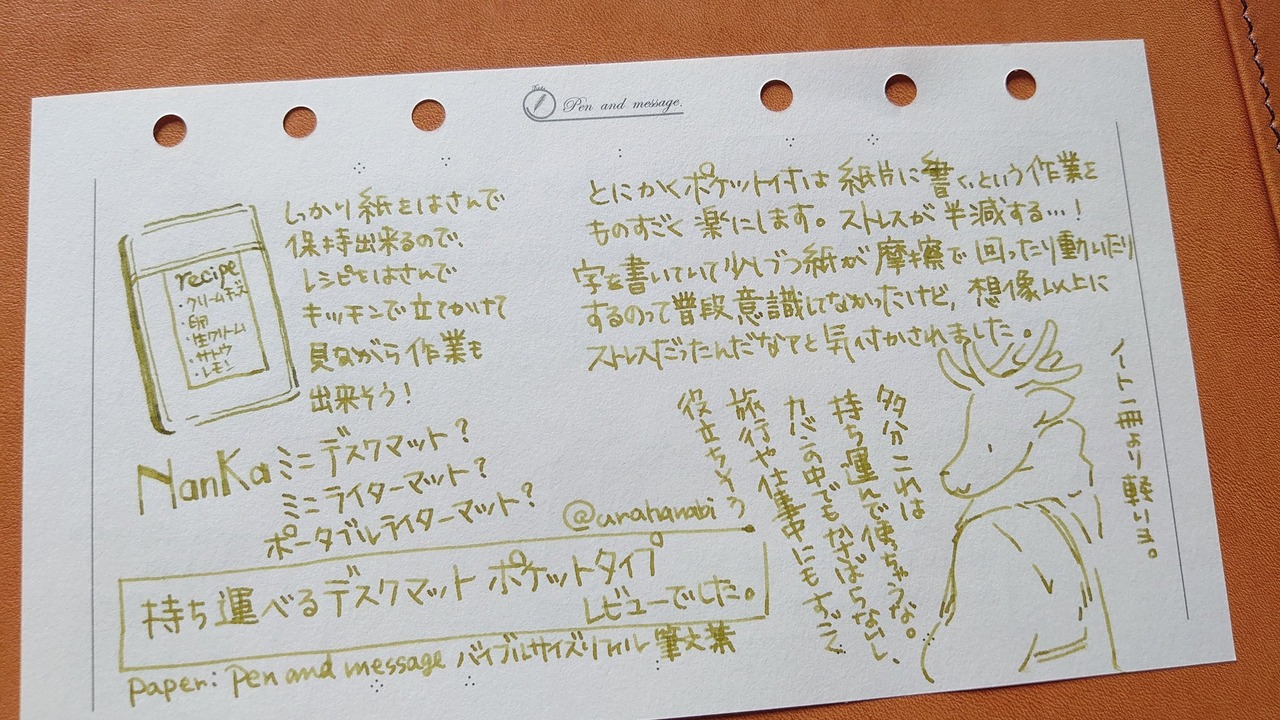 Pen and message.
recipe
・クリームチーズ
・卵
・生クリーム
・サトウ
・レモン
しっかり紙をはさんで
保持出来るので、
レシピをはさんで
キッチンで立てかけて
見ながら作業も
出来そう!
NanKa ミニデスクマット?
ミニライターマット?
ポータブルライターマット?
@urahanabi
持ち運べるデスクマット ポケットタイプ
レビューでした。
paper: Pen and message バイブルサイズリフィル 筆文葉
とにかくポケット付は紙片に書く、という作業を
ものすごく楽にします。ストレスが半減する…!
字を書いていて少しづつ紙が摩擦で回ったり動いたり
するのって普段意識してなかったけど、想像以上に
ストレスだったんだなてと気付かされました。
多分これは
持ち運んで使っちゃうな。
カバンの中でもかさばらないし、
旅行や仕事中にもすごく
役立ちそう
ノート一冊より軽いヨ。